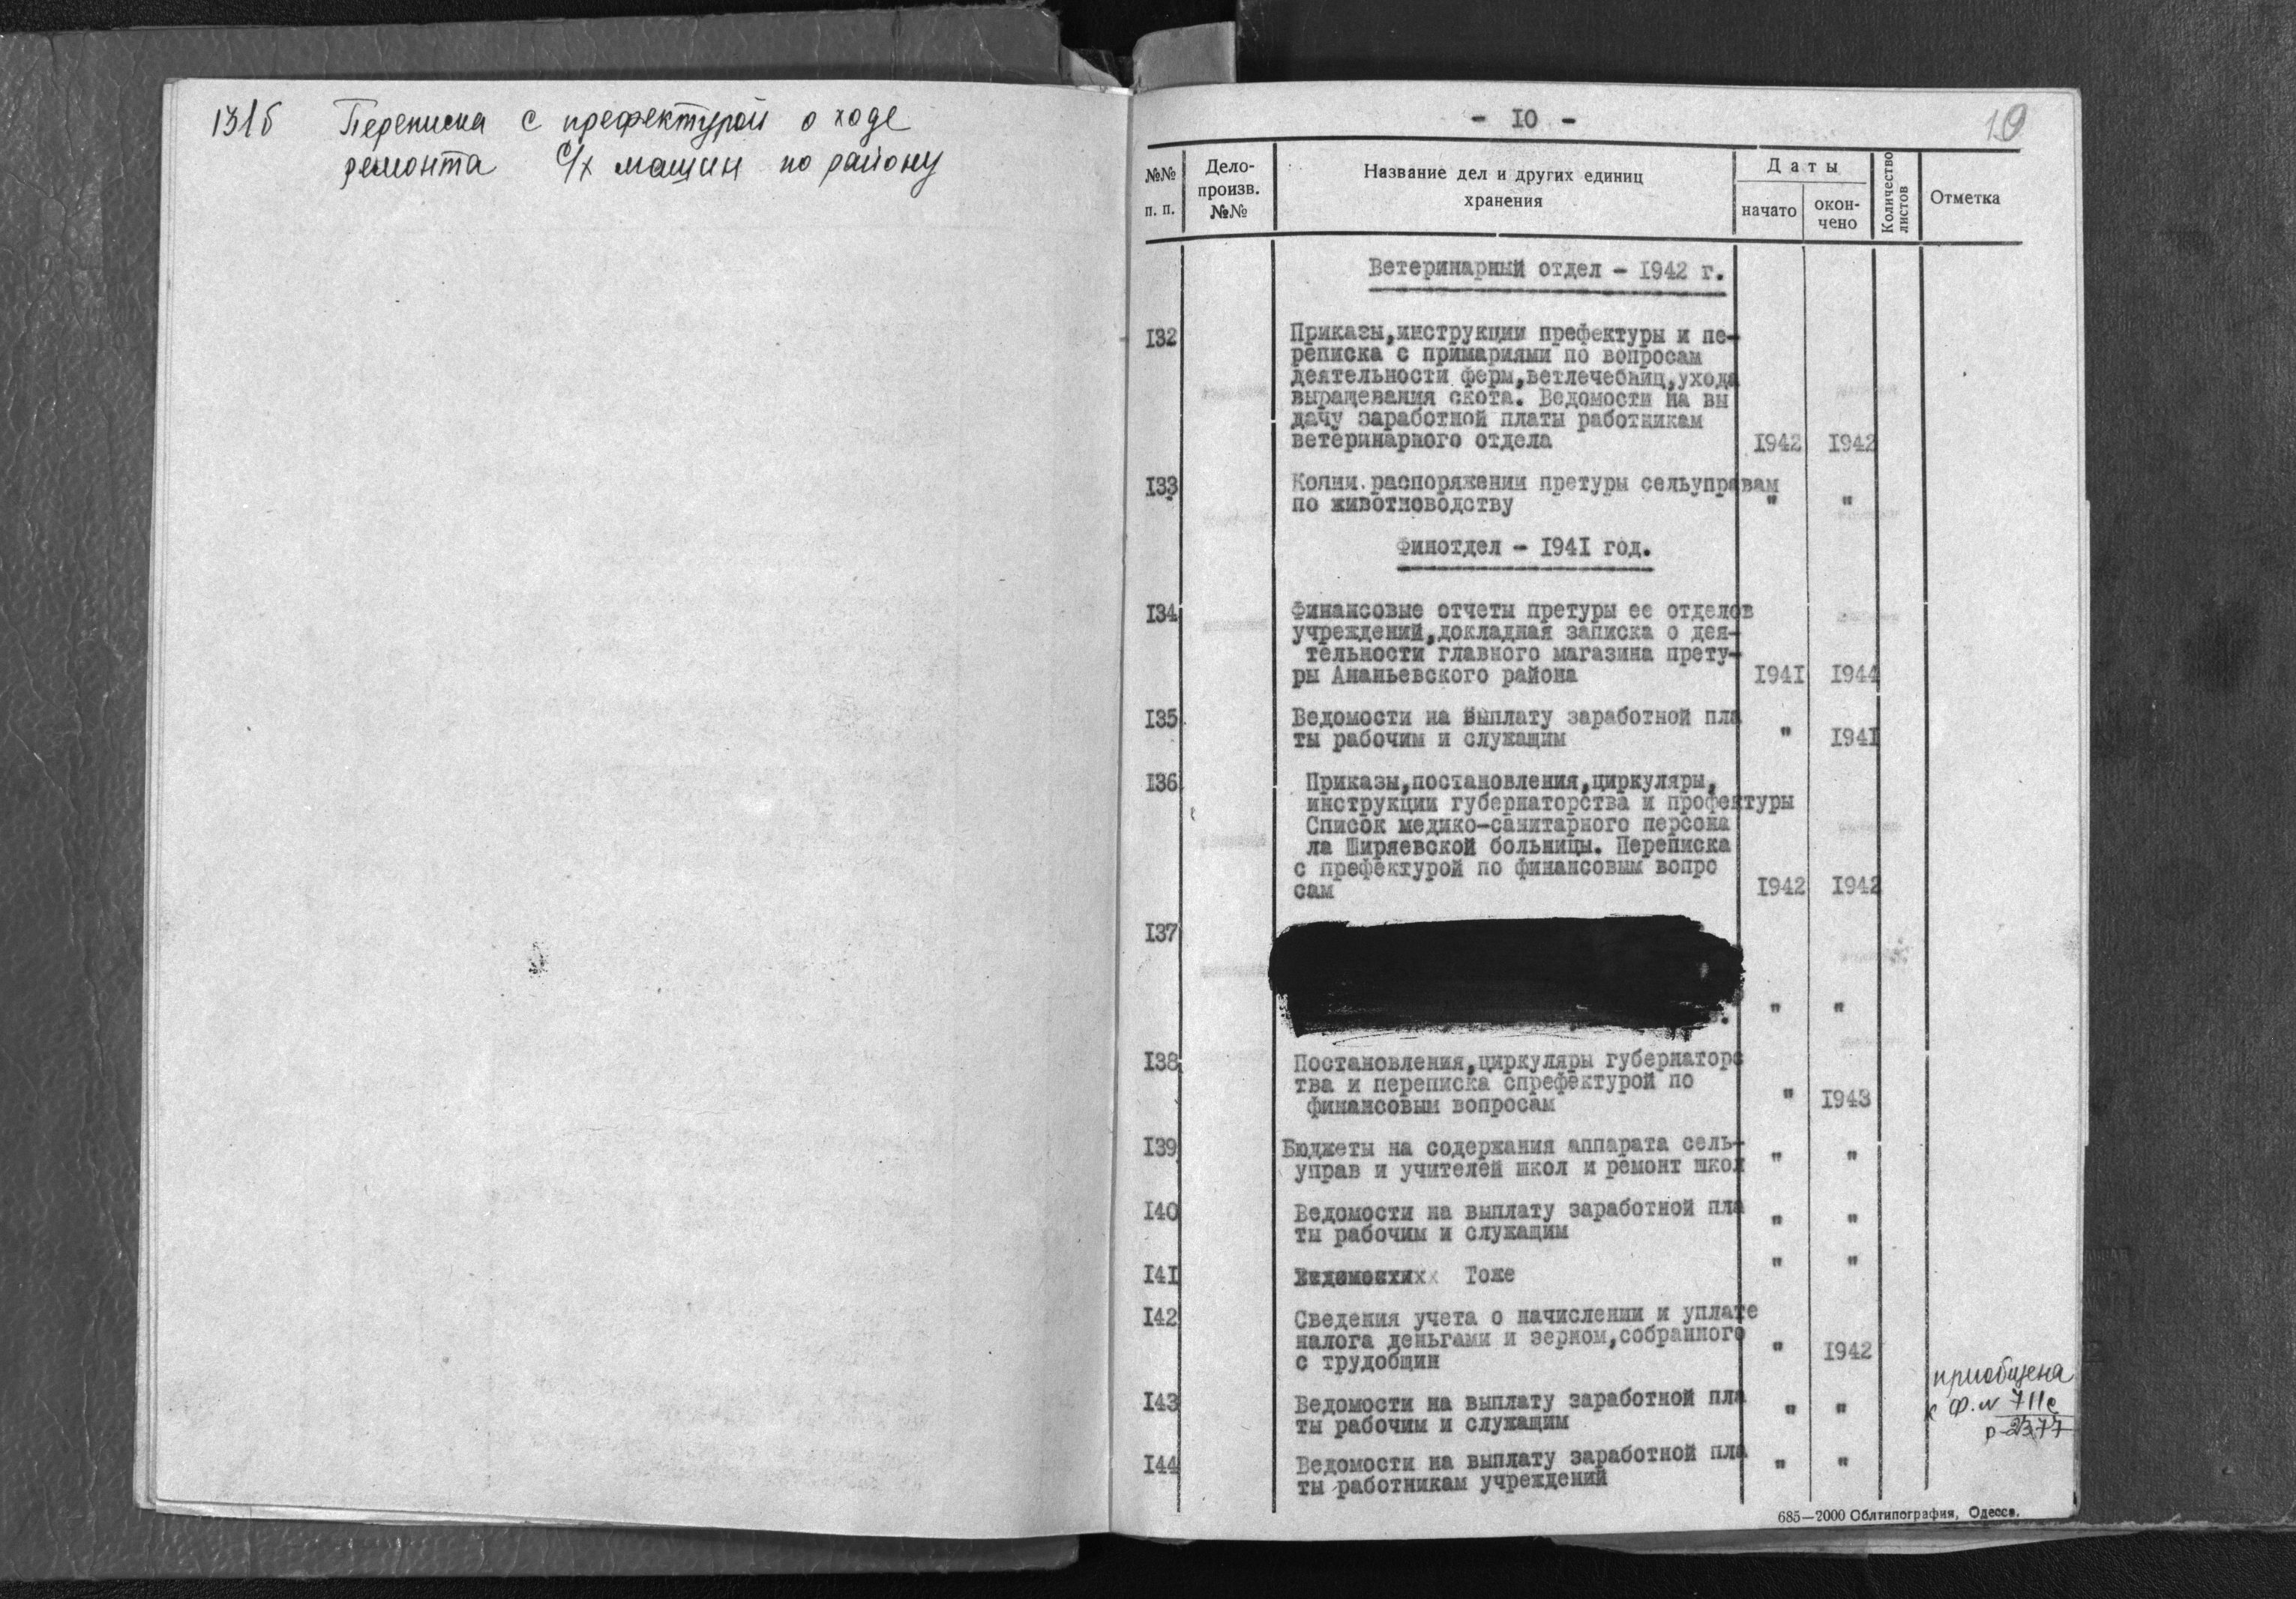 131б Переписка с префектурой о ходе
ремонта с/х машин по району
- 10 -
10
№№ п. п.
Дело-произв. №№
Название дел и других единиц хранения
Даты
начато
окон-чено
Количество листов
Отметка
Ветеринарный отдел - 1942 г.
132 Приказы,инструкции префектуры и пе-
реписка с примариями по вопросам
деятельности ферм,ветлечебниц,ухода
выращевания скота. Ведомости на вы
дачу заработной платы работникам
ветеринарного отдела 1942 1942
133 Копии распоряжении претуры сельуправам
по животноводству " "
Финотдел - 1941 год.
134 Финансовые отчеты претуры ее отделов
учреждений,докладная записка о дея-
тельности главного магазина прету-
ры Ананьевского района 1941 1944
135 Ведомости на выплату заработной пла
ты рабочим и служащим " 1941
136 Приказы,постановления,циркуляры,
инструкции губернаторства и профектуры
Список медико-санитарного персона
ла Ширяевской больницы. Переписка
с префектурой по финансовым вопро
сам 1942 1942
137
" "
138 Постановления,циркуляры губернаторс
тва и переписка спрефектурой по
финансовым вопросам " 1943
139 Бюджеты на содержания аппарата сель-
управ и учителей школ и ремонт школ " "
140 Ведомости на выплату заработной пла
ты рабочим и служащим " "
141 Тоже " "
142 Сведения учета о начислении и уплате
налога деньгами и зерном,собранного
с трудобщин " 1942
143 Ведомости на выплату заработной пла
ты рабочим и служащим " "
приобщена
к ф. № 711с
р-2377
144 Ведомости на выплату заработной пла
ты работникам учреждений " "
685—2000 Облтипография, Одесса.